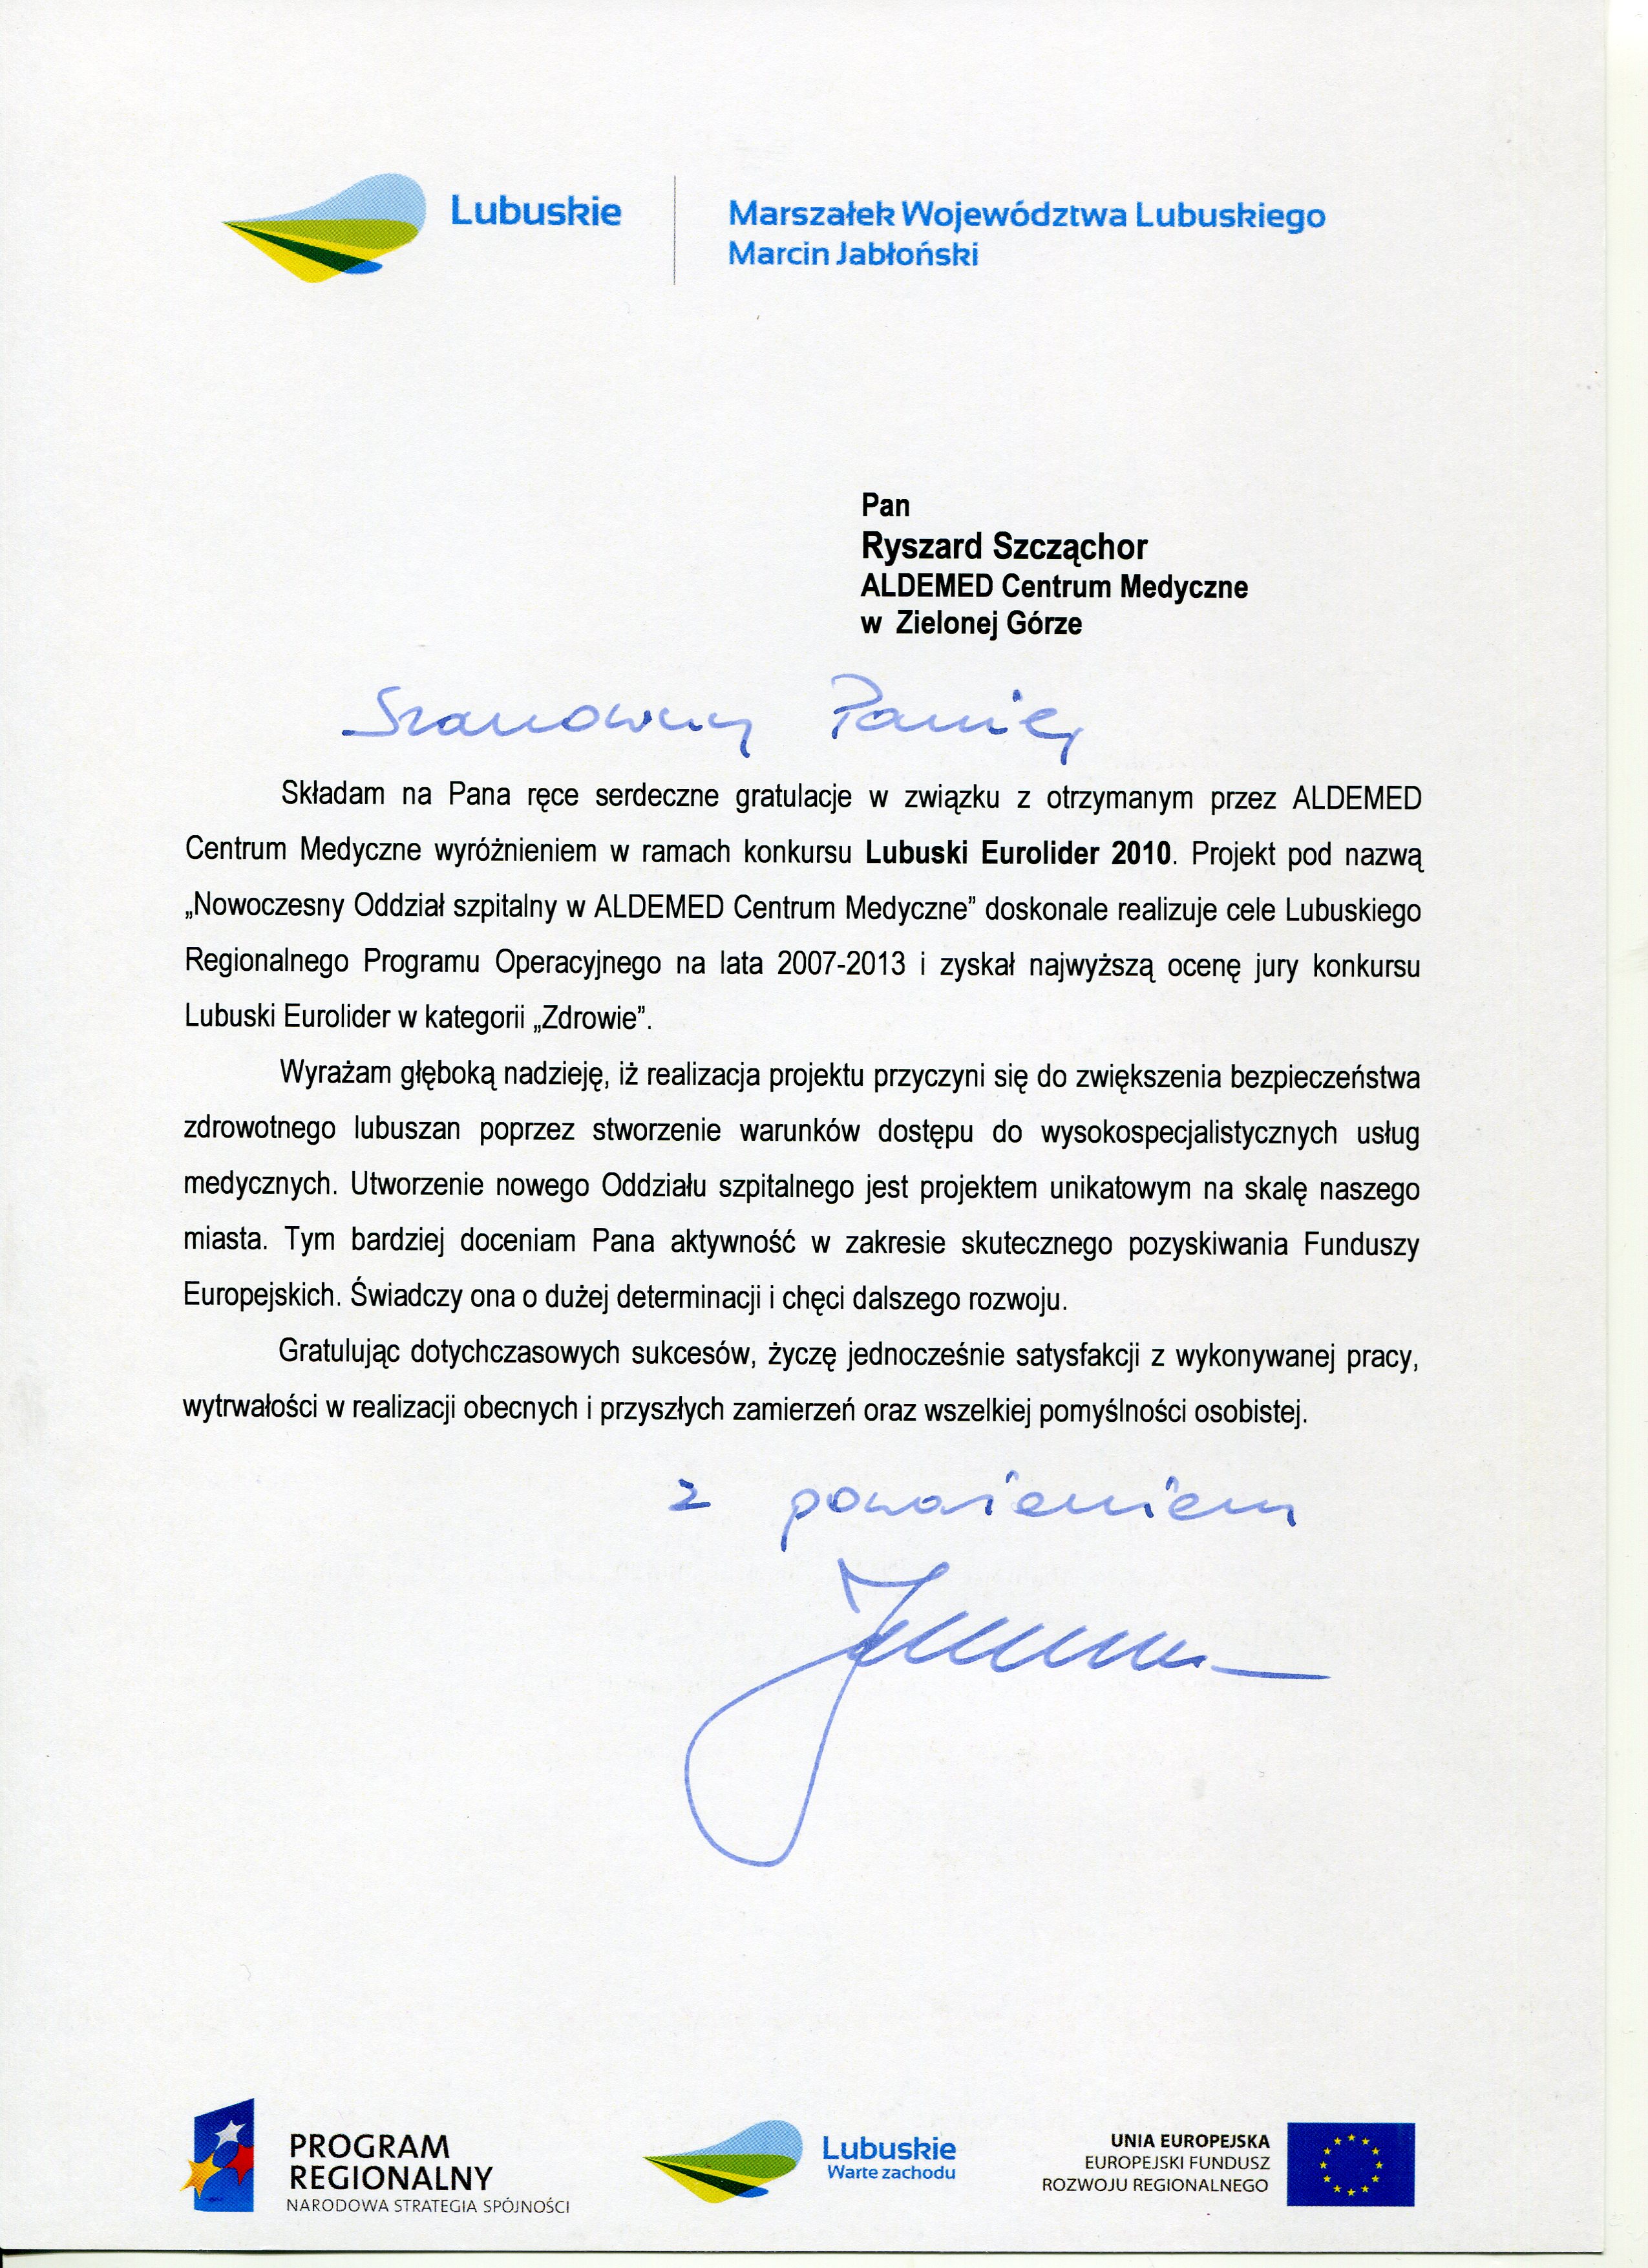 Lubuskie
Marszałek Województwa Lubuskiego
Marcin Jabłoński
Pan
Ryszard Szcząchor
ALDEMED Centrum Medyczne
w Zielonej Górze
Szanowny Panie,
Składam na Pana ręce serdeczne gratulacje w związku z otrzymanym przez ALDEMED
Centrum Medyczne wyróżnieniem w ramach konkursu Lubuski Eurolider 2010. Projekt pod nazwą
„Nowoczesny Oddział szpitalny w ALDEMED Centrum Medyczne” doskonale realizuje cele Lubuskiego
Regionalnego Programu Operacyjnego na lata 2007-2013 i zyskał najwyższą ocenę jury konkursu
Lubuski Eurolider w kategorii „Zdrowie”.
Wyrażam głęboką nadzieję, iż realizacja projektu przyczyni się do zwiększenia bezpieczeństwa
zdrowotnego lubuszan poprzez stworzenie warunków dostępu do wysokospecjalistycznych usług
medycznych. Utworzenie nowego Oddziału szpitalnego jest projektem unikatowym na skalę naszego
miasta. Tym bardziej doceniam Pana aktywność w zakresie skutecznego pozyskiwania Funduszy
Europejskich. Świadczy ona o dużej determinacji i chęci dalszego rozwoju.
Gratulując dotychczasowych sukcesów, życzę jednocześnie satysfakcji z wykonywanej pracy,
wytrwałości w realizacji obecnych i przyszłych zamierzeń oraz wszelkiej pomyślności osobistej.
z poważaniem
PROGRAM
REGIONALNY
NARODOWA STRATEGIA SPÓJNOŚCI
Lubuskie
Warte zachodu
UNIA EUROPEJSKA
EUROPEJSKI FUNDUSZ
ROZWOJU REGIONALNEGO